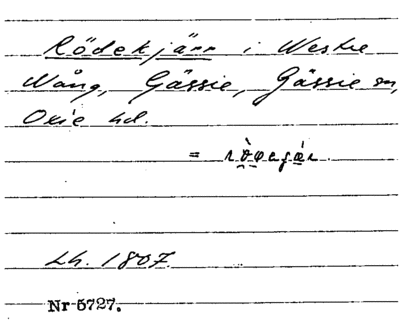 Rödekjärr i Westre
Wång, Gässie, Gässie sn,
Oxie hd.
=
Lh. 1807.
Nr 5727.